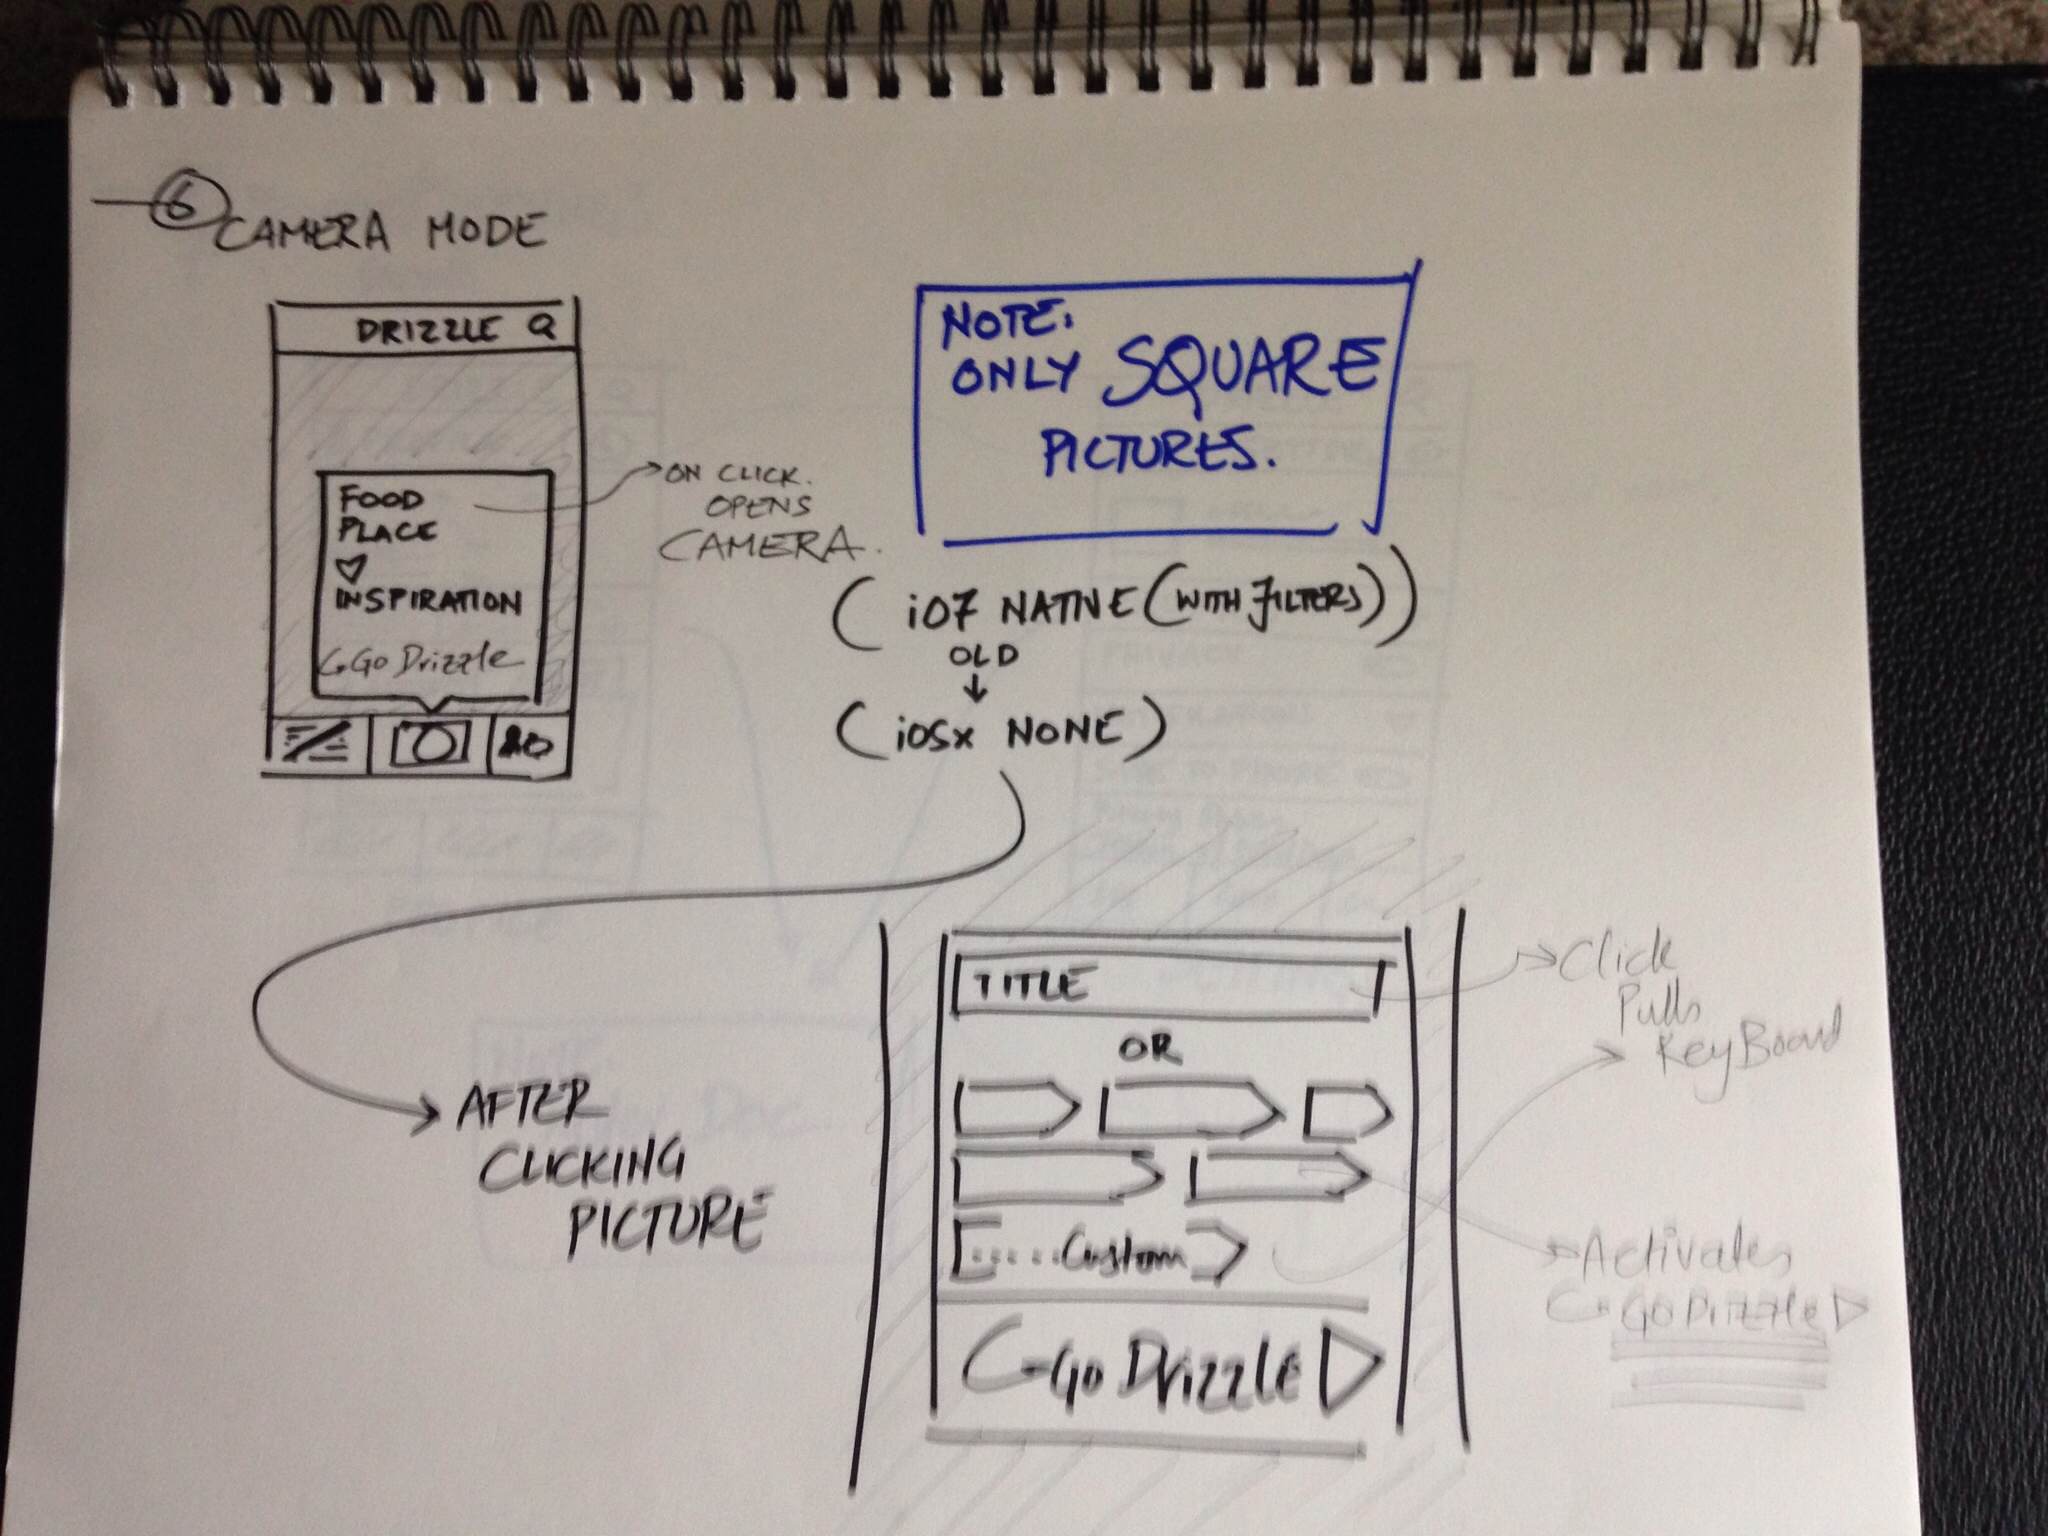 6
CAMERA MODE
DRIZZLE
FOOD
PLACE
INSPIRATION
Go Drizzle
ON CLICK.
OPENS
CAMERA.
NOTE:
ONLY SQUARE
PICTURES.
(iO7 NATIVE (WITH FILTERS))
OLD
(iOSx NONE)
AFTER
CLICKING
PICTURE
TITLE
OR
.....Custom
Go Drizzle
Click
Pulls
KeyBoard
Activates
Go Drizzle